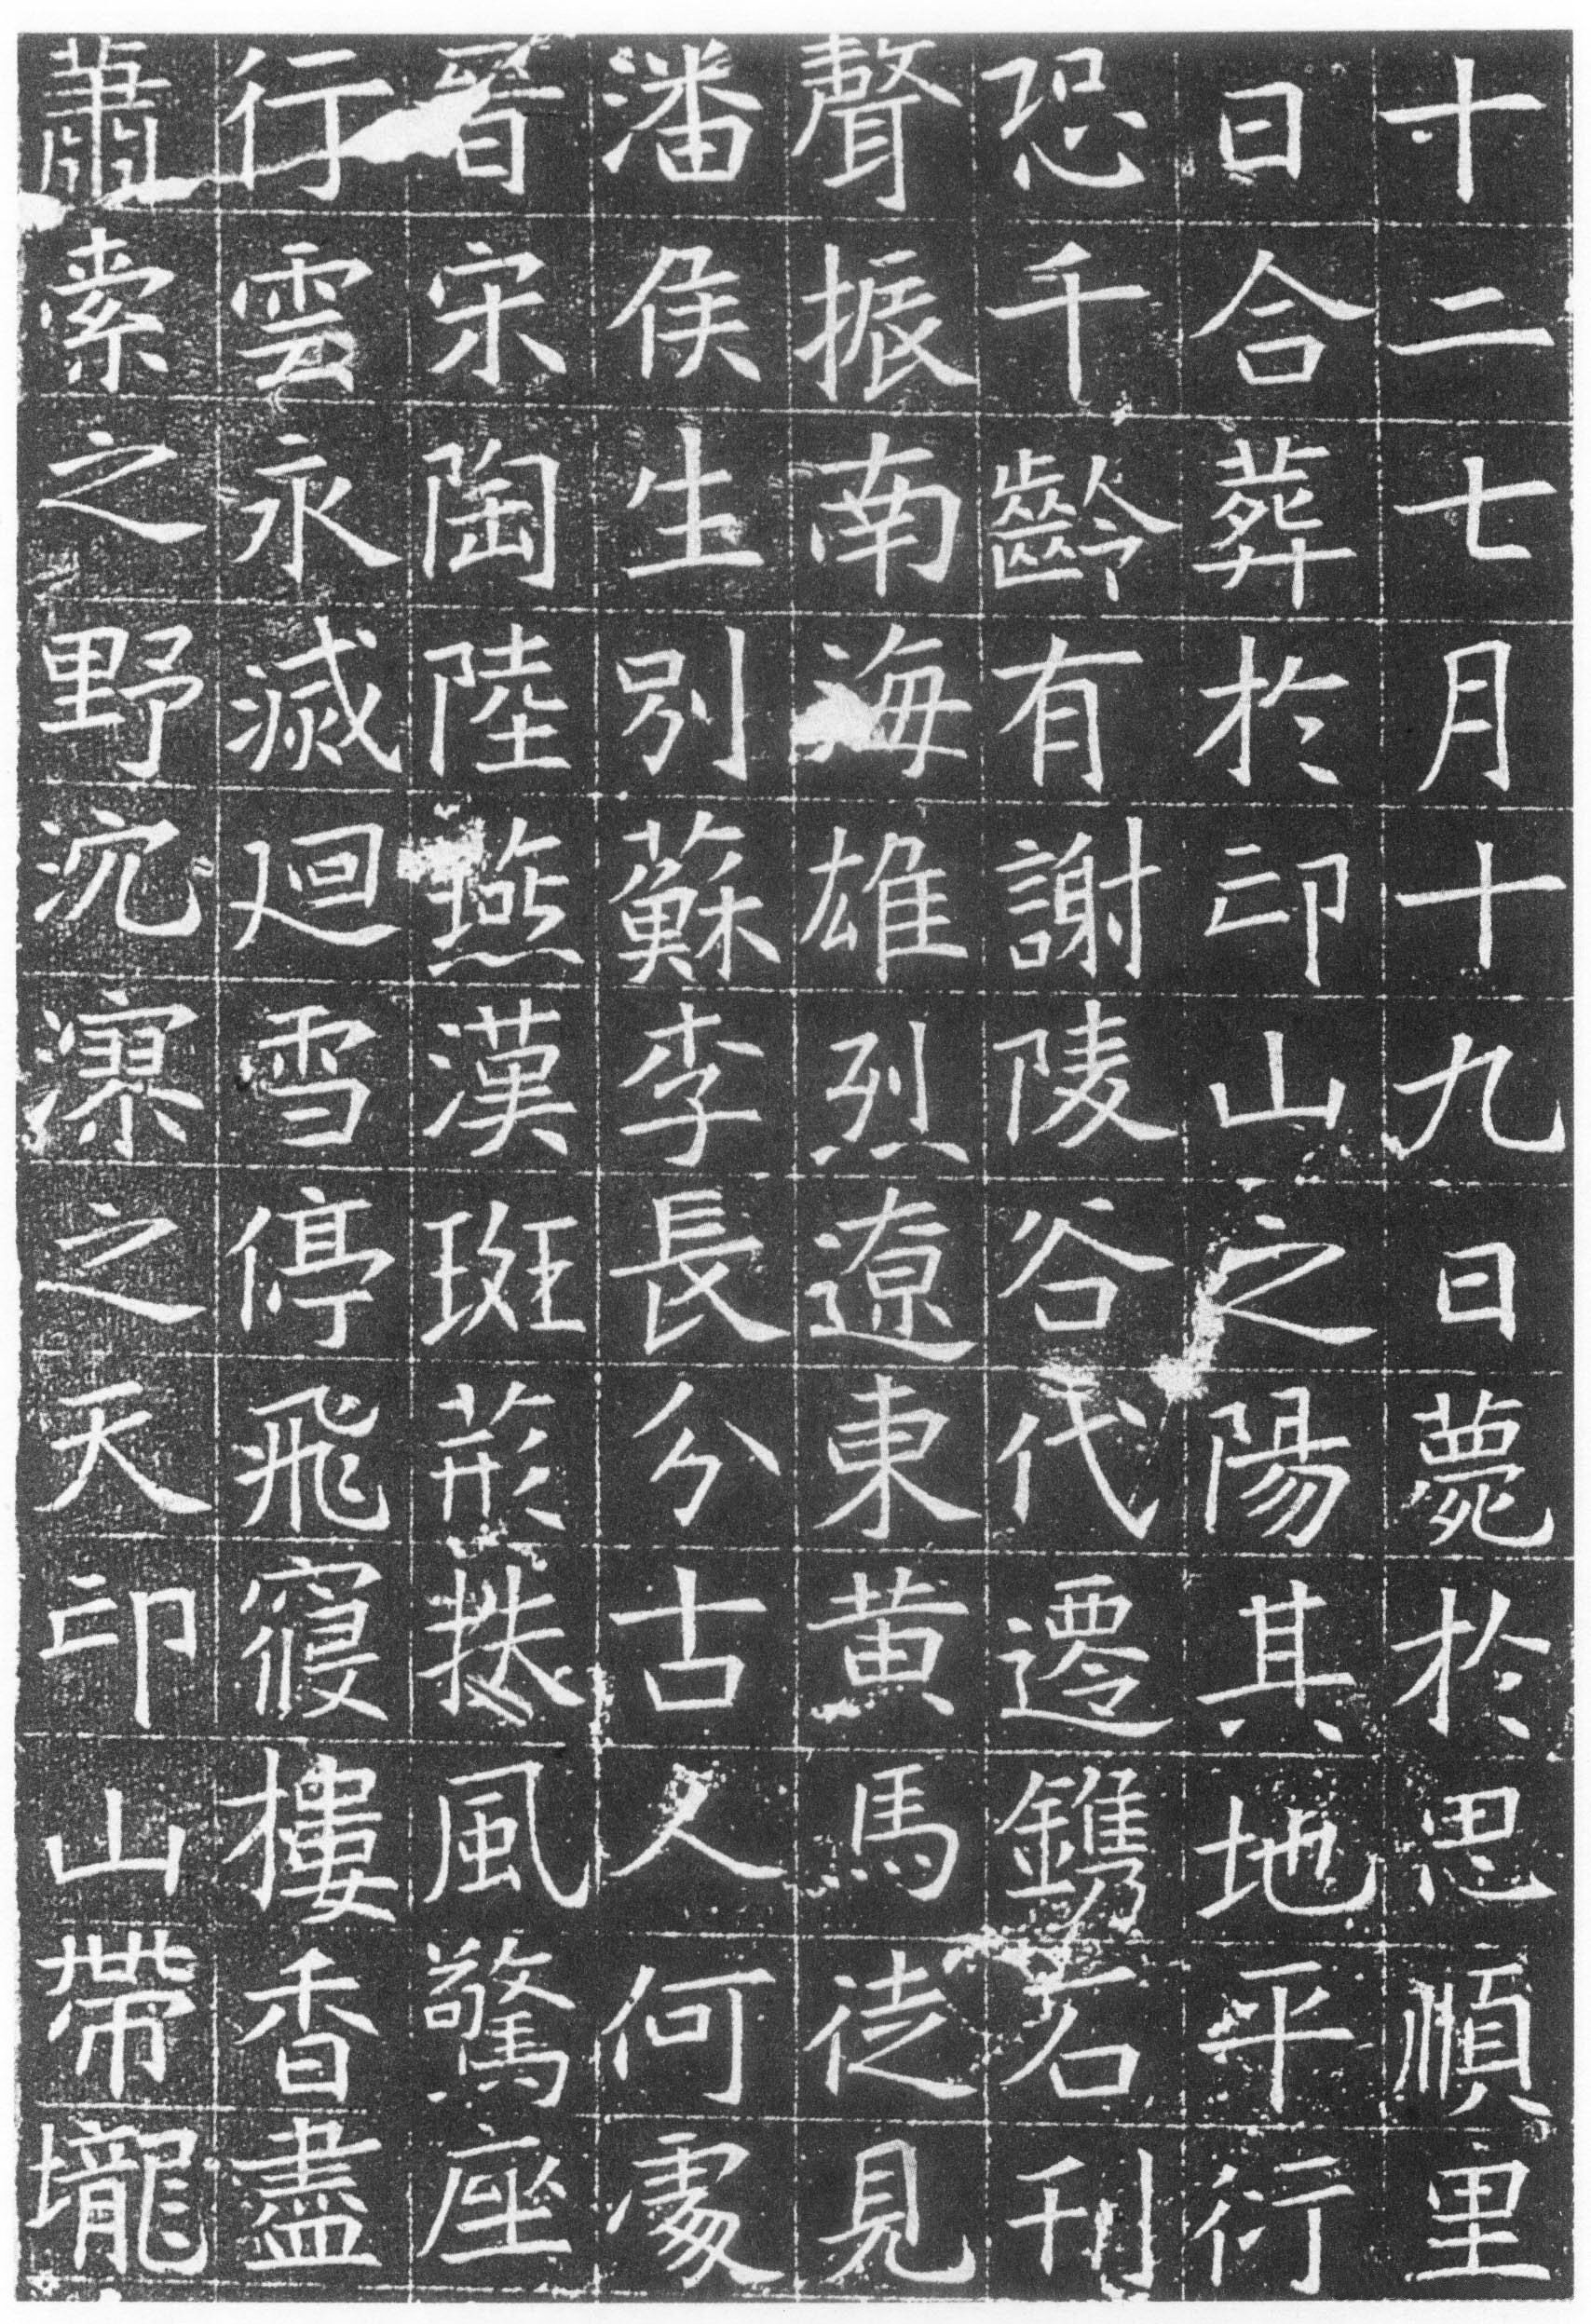 十二七月十九日薨於思順里
日合葬於邙山之陽其地平衍
恐千齡有謝陵谷代遷鐫石刊
聲振南海雄烈遼東黃馬徒見
潘侯生別蘇李長分古人何處
晉宋陶陸燕漢班荊扶風驚座
行雲永滅迴雪停飛寢樓香盡
蕭索之野沉寥之天邙山帶壠